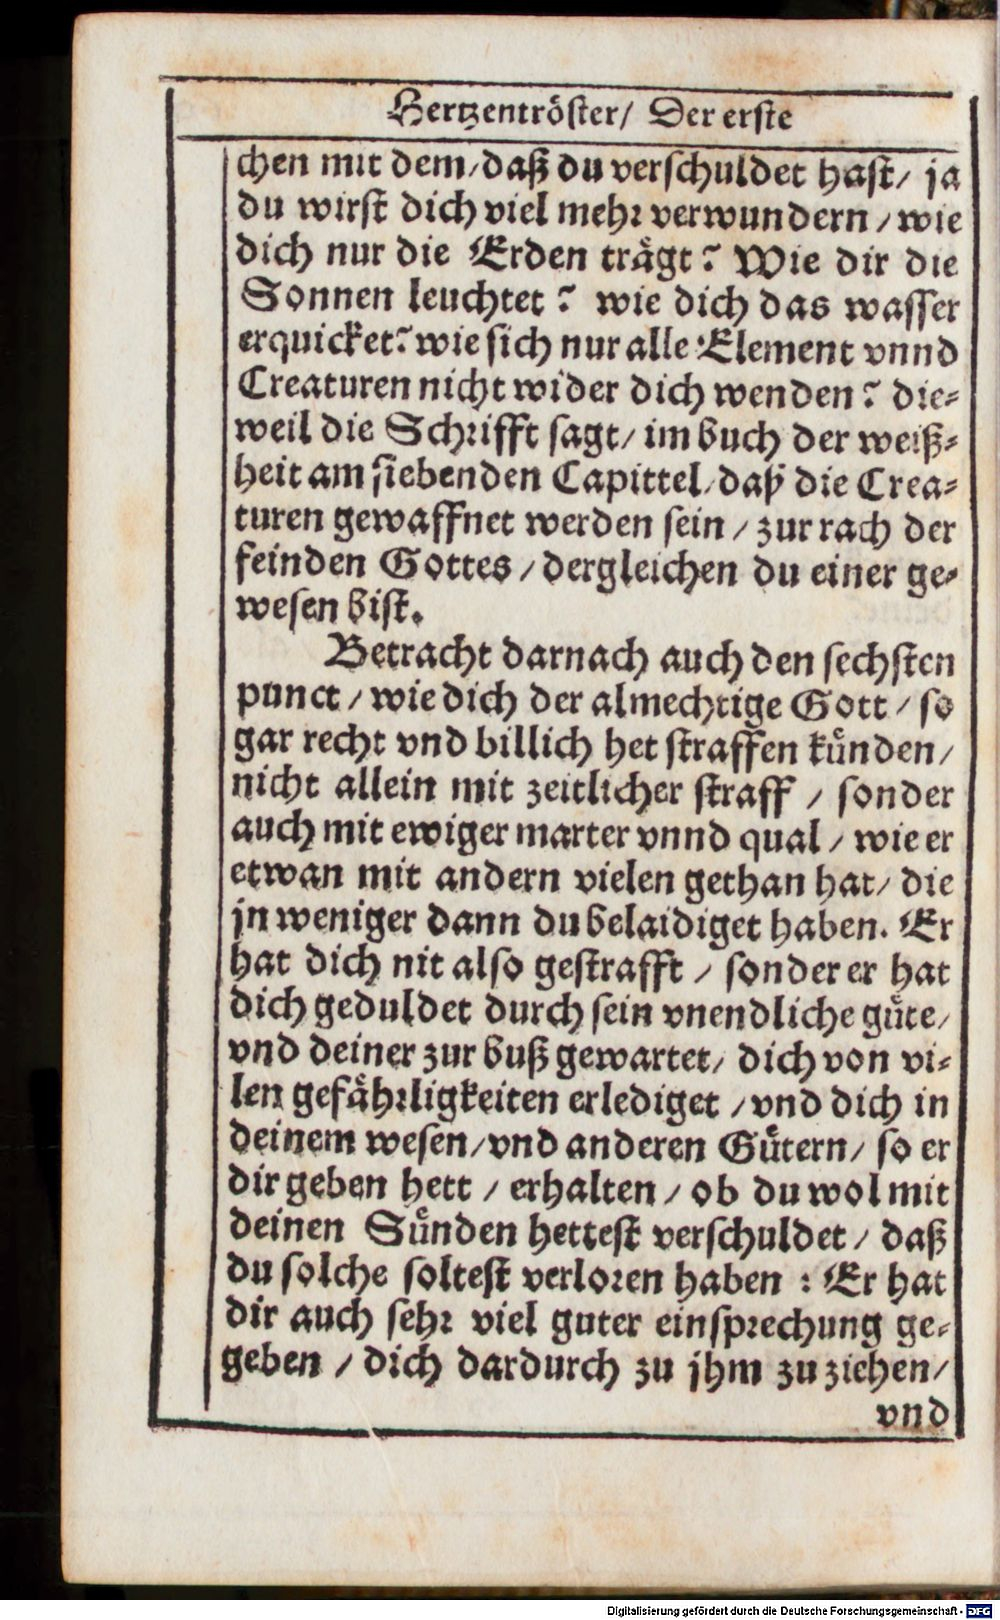 Hertzentröster/ Der erste
chen mit dem/daß du verschuldet hast/ ja
du wirst dich viel mehr verwundern/wie
dich nur die Erden trägt? Wie dir die
Sonnen leuchtet? wie dich das wasser
erquicket? wie sich nur alle Element vnnd
Creaturen nicht wider dich wenden? die-
weil die Schrifft sagt/ im buch der weiß-
heit am siebenden Capittel/daß die Crea-
turen gewaffnet werden sein/zur rach der
feinden Gottes/dergleichen du einer ge-
wesen bist.
Betracht darnach auch den sechsten
punct/wie dich der almechtige Gott/so
gar recht vnd billich het straffen künden/
nicht allein mit zeitlicher straff/sonder
auch mit ewiger marter vnnd qual/wie er
etwan mit andern vielen gethan hat/ die
jn weniger dann du belaidiget haben. Er
hat dich nit also gestrafft/sonder er hat
dich geduldet durch sein vnendliche güte/
vnd deiner zur buß gewartet/ dich von vi-
len gefährligkeiten erlediget/vnd dich in
deinem wesen/vnd anderen Gütern/ so er
dir geben hett/erhalten/ob du wol mit
deinen Sünden hettest verschuldet/ daß
du solche soltest verloren haben: Er hat
dir auch sehr viel guter einsprechung ge-
geben/dich dardurch zu jhm zu ziehen/
vnd
Digitalisierung gefördert durch die Deutsche Forschungsgemeinschaft - DFG